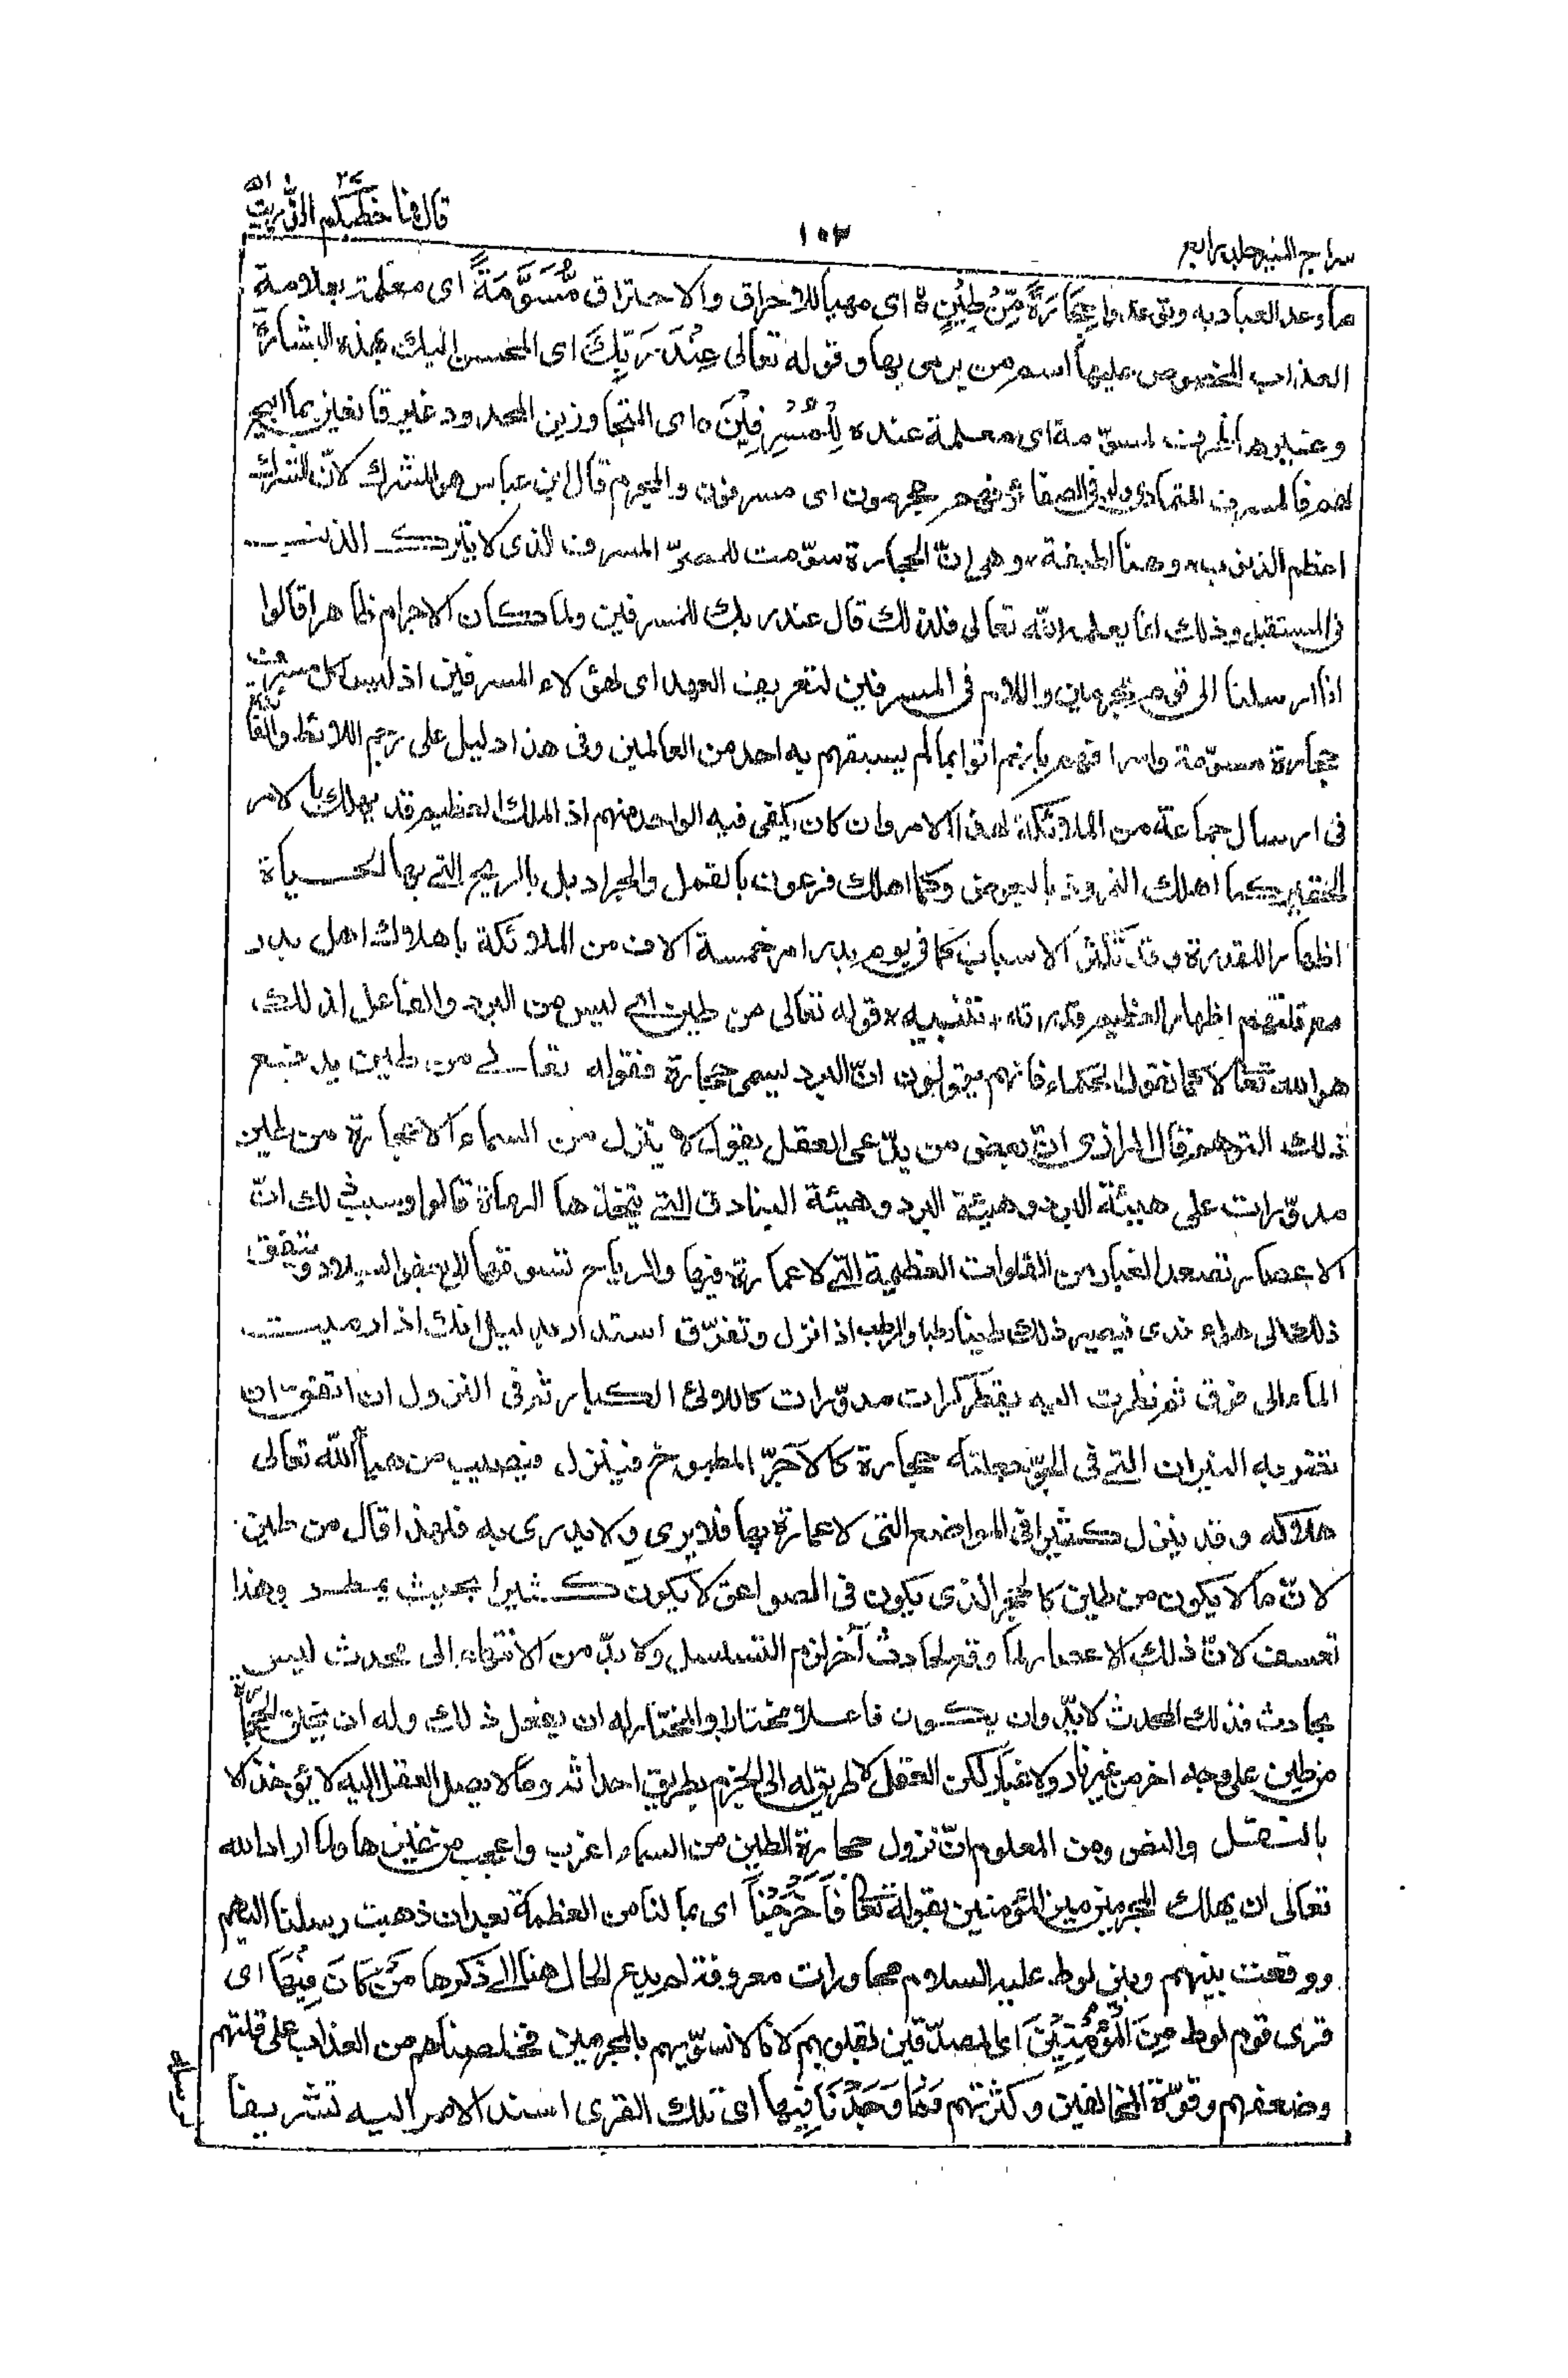 قال فما خطبكم ٢٧ الذّٰريٰت ٥١
١٠٣
سراج المنير جلد رابع
ما وعد العباد به وتوعدوا حِجَارَةً مِّنْ طِيْنٍ ۵ اى مهيا للاحراق والاحتراق مُّسَوَّمَةً اى معلمة بعلامة
العذاب المخصوص عليها اسم من يرمى بها وقوله تعالى عِنْدَ رَبِّكَ اى المحسن اليك بهذه البشارة
وغيرها ظرف لمسوّمة اى معلمة عنده لِلْمُسْرِفِيْنَ ۵ اى المتجاوزين الحدود غير قانعين بما ابيح
لهم فالمسرف المتمادى ولو فى الصغائر فهم مجرمون اى مسرفون والمجرم قال ابن عباس هو المشرك لانّ الشرك
اعظم الذنوب وهنا لطيفة وهى انّ الحجارة سوّمت للمصرّ المسرف الذى لا يترك الذنب
فى المستقبل وذلك انما يعلمه الله تعالى فلذلك قال عند ربك للمسرفين ولما كان الاجرام ظاهرا قالوا
انا ارسلنا الى قوم مجرمين واللام فى المسرفين لتعريف العهد اى لهؤلاء المسرفين اذ ليس لكل مسرف
حجارة مسوّمة واسرافهم بانهم اتوا بما لم يسبقهم به احد من العالمين وفى هذا دليل على رجم اللائط والفائدة
فى ارسال جماعة من الملائكة لهذا الامر وان كان يكفى فيه الواحد منهم اذ الملك العظيم قد يهلك بالامر
الحقير كما اهلك النمروذ بالبعوض وكما اهلك فرعون بالقمل والجراد بل بالريح التى بها الحياة
اظهارا للقدرة وقد تكثر الاسباب كما فى يوم بدر امر خمسة الاف من الملائكة باهلاك اهل بدر
مع قلتهم اظهارا لعظيم قدرته تنبيه قوله تعالى من طين اى ليس من البرد والفاعل لذلك
هو الله تعالى لا كما تقول الحكماء فانهم يقولون انّ البرد يسمى حجارة فقوله تعالى من طين يدفع
ذلك التوهم قال الرازى انّ بعض من يدّعى العقل يقول لا ينزل من السماء الا حجارة من طين
مدوّرات على هيئة البرد وهيئة البنادق التى يتخذها الرماة قالوا وسبب ذلك انّ
الاعصار تصعد الغبار من الفلوات العظيمة التى لا عمارة فيها والرياح تسوقها الى بعض البلاد ويتفق
ذلك الى هواء ندى فيصير ذلك طينا رطبا والرطب اذا نزل وتفرّق استدار بدليل انك اذا رميت
الماء الى فوق ثم نظرت اليه يقطر كرات مدوّرات كاللولؤ الكبار ثم فى النزول ان اتفق ان
تضربه النيران التى فى الجوّ جعلته حجارة كالآجرّ المطبوخ فينزل فيصيب من هيأ الله تعالى
هلاكه وقد ينزل كثيرا فى المواضع التى لا عمارة بها فلا يرى ولا يدرى به فلهذا قال من طين
لانّ ما لا يكون من طين كالحجر الذى يكون فى الصواعق لا يكون كثيرا بحيث يمطر وهذا
تعسف لانّ ذلك الاعصار لما وقع لحادث آخر لزم التسلسل ولا بدّ من الانتهاء الى محدث ليس
بحادث فذلك المحدث لا بدّ وان يكون فاعلا مختارا والمختار له ان يفعل ذلك وله ان يخلق الحجارة
من طين على وجه اخر من غير نار ولا غبار لكن العقل لا طريق له الى الجزم بطريق احداثه وما لا يصل العقل اليه لا يؤخذ الا
بالنقل والنص ومن المعلوم انّ نزول حجارة الطين من السماء اغرب واعجب من غيرها ولما اراد الله
تعالى ان يهلك المجرمين ميز المؤمنين بقوله تعالى فَاَخْرَجْنَا اى بما لنا من العظمة بعد ان ذهبت رسلنا اليهم
ووقعت بينهم وبين لوط عليه السلام محاورات معروفة لم يدع الحال هنا الى ذكرها مَنْ كَانَ فِيْهَا اى
قرى قوم لوط مِنَ الْمُؤْمِنِيْنَ اى المصدّقين بقلوبهم لانا لا نسوّيهم بالمجرمين فخلصناهم من العذاب على قلتهم
وضعفهم وقوّة المخالفين وكثرتهم فَمَا وَجَدْنَا فِيْهَا اى تلك القرى اسند الامر اليه تشريفا